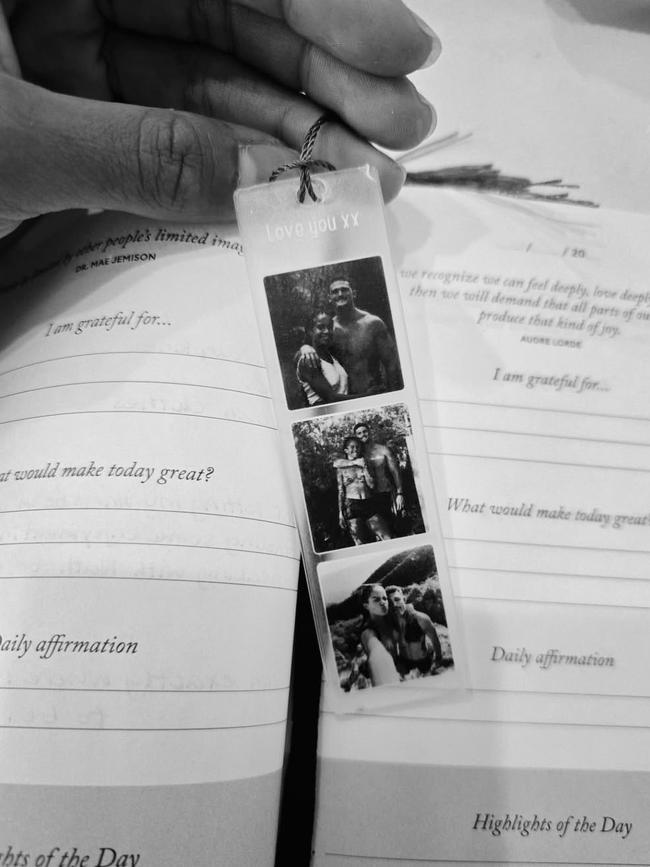 Love you xx
by other people's limited
DR. MAE JEMISON
I am grateful for...
would make today great?
Daily affirmation
of the Day
/ / 20
we recognize we can feel deeply, love
then we will demand that all parts of
produce that kind of joy.
AUDRE LORDE
I am grateful for...
What would make today great?
Daily affirmation
Highlights of the Day